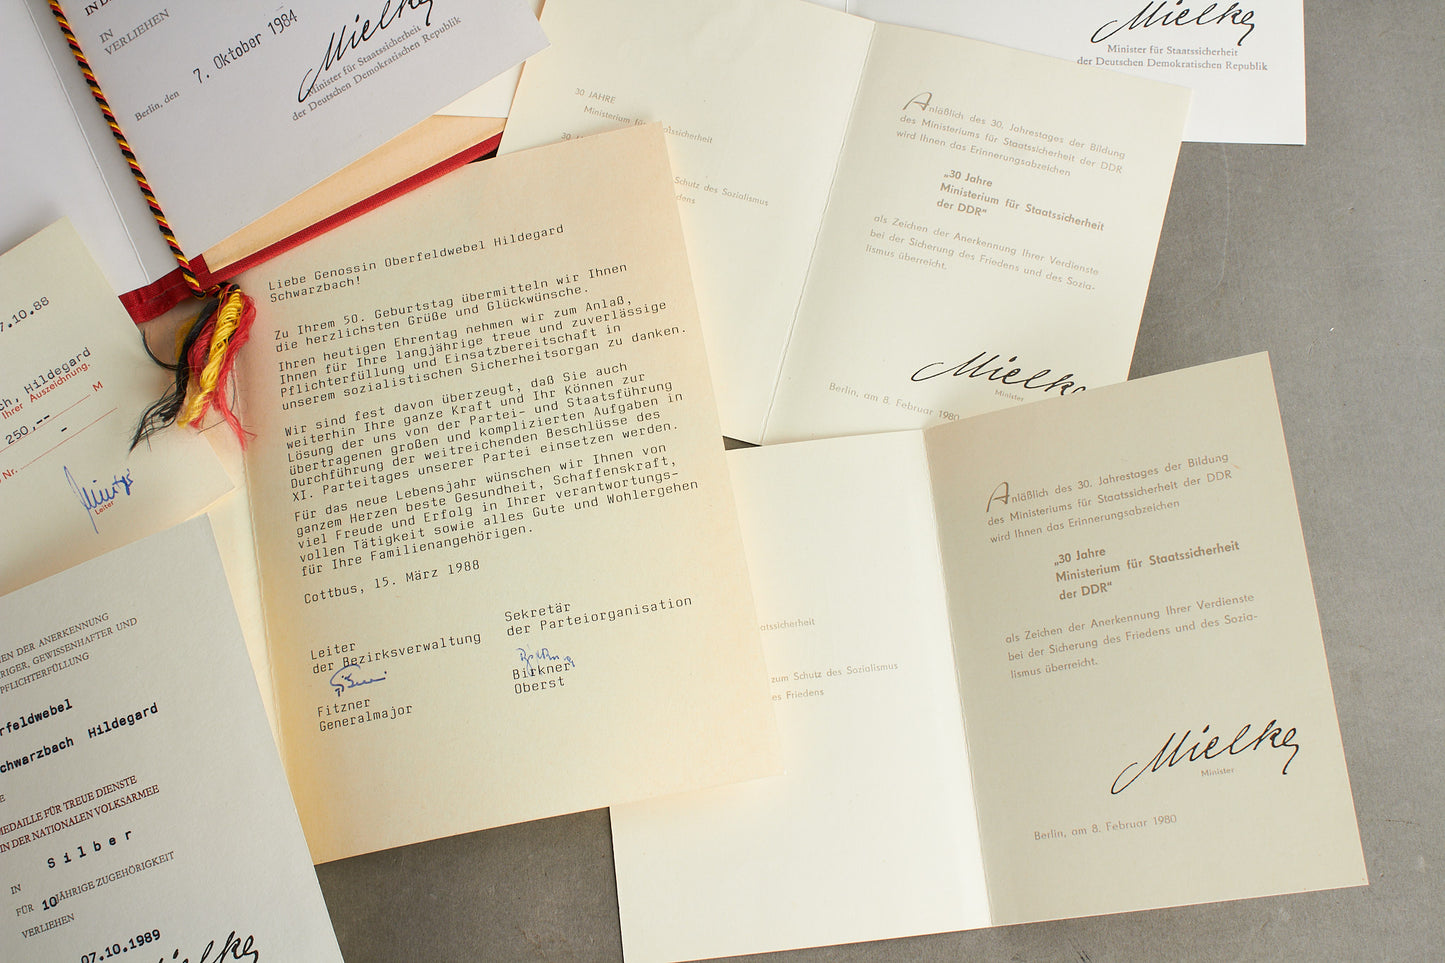 IN
VERLIEHEN
7. Oktober 1984
Berlin, den
Mielke
Minister für Staatssicherheit
der Deutschen Demokratischen Republik
Mielke
Minister für Staatssicherheit
der Deutschen Demokratischen Republik
30 JAHRE
Ministerium für
Schutz des Sozialismus
Anläßlich des 30. Jahrestages der Bildung
des Ministeriums für Staatssicherheit der DDR
wird Ihnen das Erinnerungsabzeichen
„30 Jahre
Ministerium für Staatssicherheit
der DDR“
als Zeichen der Anerkennung Ihrer Verdienste
bei der Sicherung des Friedens und des Sozia-
lismus überreicht.
Mielke
Minister
Berlin, am 8. Februar 1980
7.10.88
ch, Hildegard
Ihrer Auszeichnung.
250,-- M
Nr. -
Leiter
Liebe Genossin Oberfeldwebel Hildegard
Schwarzbach!
Zu Ihrem 50. Geburtstag übermitteln wir Ihnen
die herzlichsten Grüße und Glückwünsche.
Ihren heutigen Ehrentag nehmen wir zum Anlaß,
Ihnen für Ihre langjährige treue und zuverlässige
Pflichterfüllung und Einsatzbereitschaft in
unserem sozialistischen Sicherheitsorgan zu danken.
Wir sind fest davon überzeugt, daß Sie auch
weiterhin Ihre ganze Kraft und Ihr Können zur
Lösung der uns von der Partei- und Staatsführung
übertragenen großen und komplizierten Aufgaben in
Durchführung der weitreichenden Beschlüsse des
XI. Parteitages unserer Partei einsetzen werden.
Für das neue Lebensjahr wünschen wir Ihnen von
ganzem Herzen beste Gesundheit, Schaffenskraft,
viel Freude und Erfolg in Ihrer verantwortungs-
vollen Tätigkeit sowie alles Gute und Wohlergehen
für Ihre Familienangehörigen.
Cottbus, 15. März 1988
Leiter
der Bezirksverwaltung
Fitzner
Generalmajor
Sekretär
der Parteiorganisation
Birkner
Oberst
atssicherheit
zum Schutz des Sozialismus
es Friedens
Anläßlich des 30. Jahrestages der Bildung
des Ministeriums für Staatssicherheit der DDR
wird Ihnen das Erinnerungsabzeichen
„30 Jahre
Ministerium für Staatssicherheit
der DDR“
als Zeichen der Anerkennung Ihrer Verdienste
bei der Sicherung des Friedens und des Sozia-
lismus überreicht.
Mielke
Minister
Berlin, am 8. Februar 1980
EN DER ANERKENNUNG
RIGER, GEWISSENHAFTER UND
PFLICHTERFÜLLUNG
rfeldwebel
chwarzbach Hildegard
E
MEDAILLE FÜR TREUE DIENSTE
IN DER NATIONALEN VOLKSARMEE
IN Silber
FÜR 10JÄHRIGE ZUGEHÖRIGKEIT
VERLIEHEN
07.10.1989
Mielke